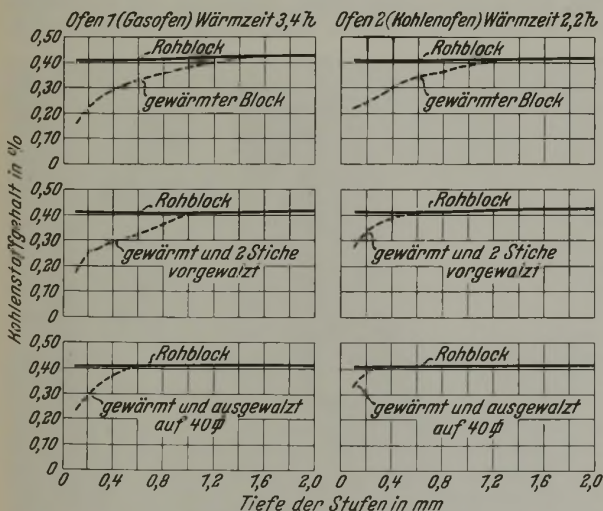 Ofen 1 (Gasofen) Wärmzeit 3,4 h
Ofen 2 (Kohlenofen) Wärmzeit 2,2 h
Kohlenstoffgehalt in %
0,50
0,40
0,30
0,20
0,10
0
Rohblock
gewärmter Block
Rohblock
gewärmter Block
0,50
0,40
0,30
0,20
0,10
0
Rohblock
gewärmt und 2 Stiche
vorgewalzt
Rohblock
gewärmt und 2 Stiche
vorgewalzt
0,50
0,40
0,30
0,20
0,10
0
Rohblock
gewärmt und ausgewalzt
auf 40 ϕ
Rohblock
gewärmt und ausgewalzt
auf 40 ϕ
0 0,4 0,8 1,2 1,6 2,0
0 0,4 0,8 1,2 1,6 2,0
Tiefe der Stufen in mm